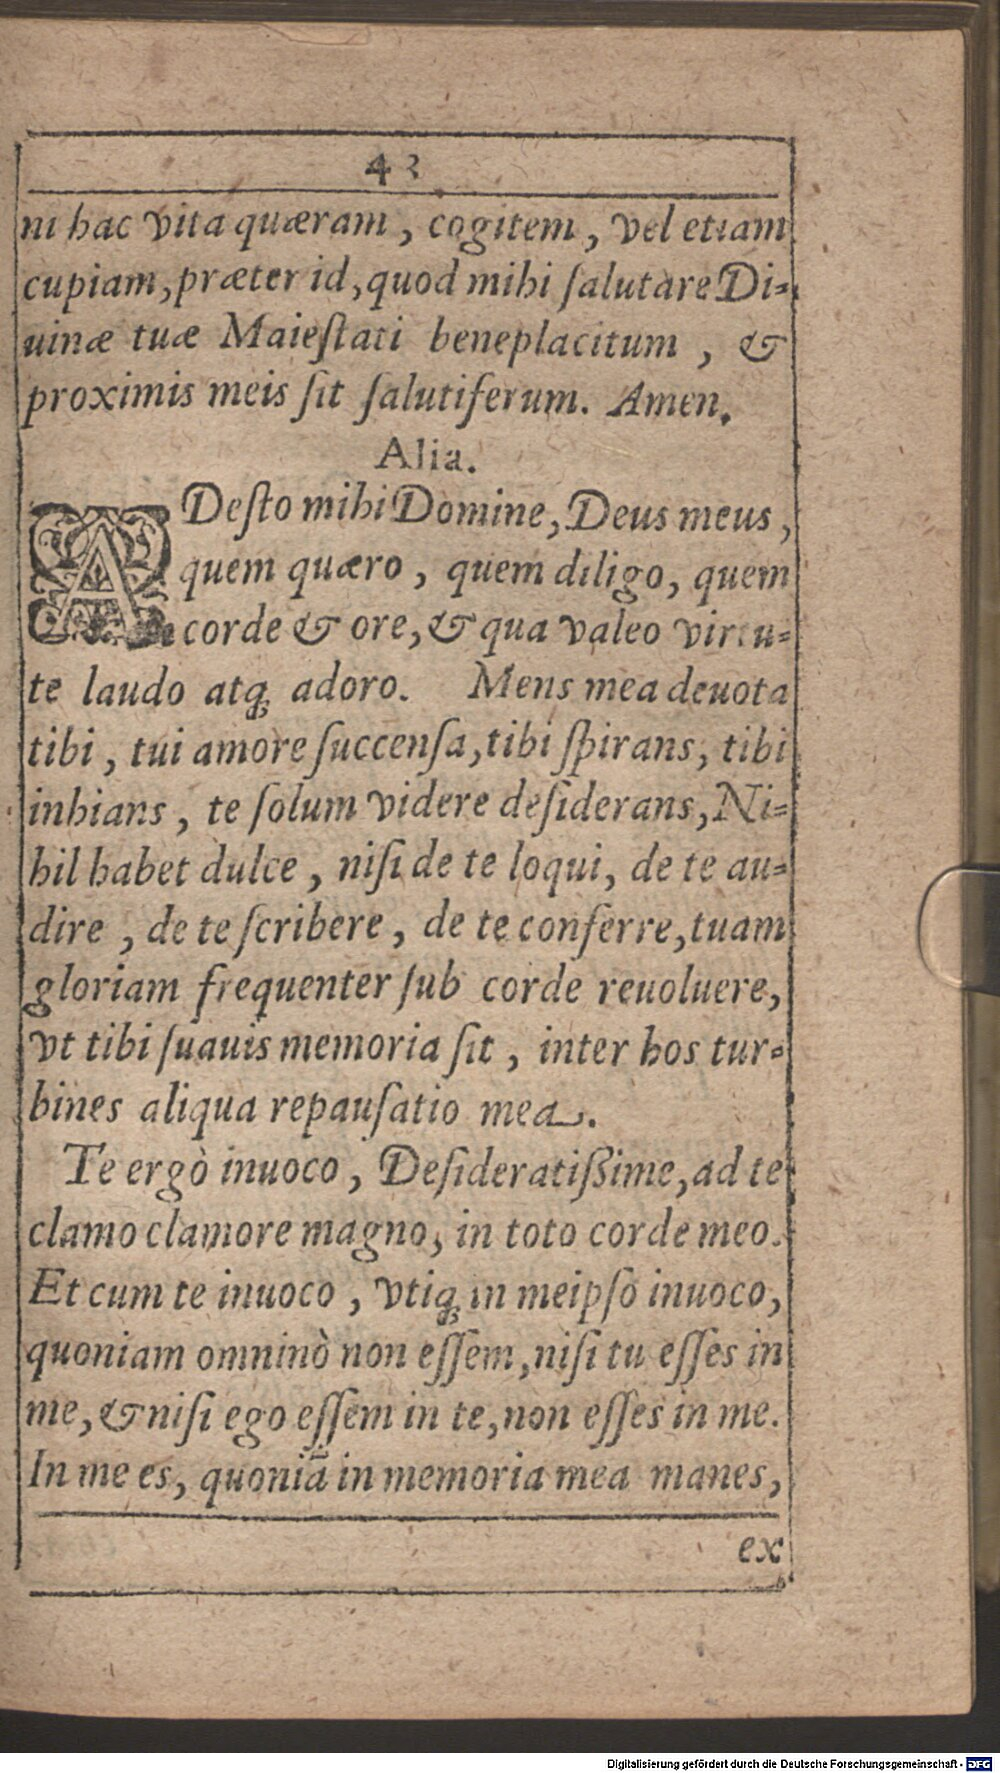 43
ni hac vita quæram, cogitem, vel etiam
cupiam, præter id, quod mihi salutare Di-
uinæ tuæ Maiestati beneplacitum, &
proximis meis sit salutiferum. Amen.
Alia.
ADesto mihi Domine, Deus meus,
quem quæro, quem diligo, quem
corde & ore, & qua valeo virtu-
te laudo atq; adoro. Mens mea deuota
tibi, tui amore succensa, tibi spirans, tibi
inhians, te solum videre desiderans, Ni-
hil habet dulce, nisi de te loqui, de te au-
dire, de te scribere, de te conferre, tuam
gloriam frequenter sub corde reuoluere,
vt tibi suauis memoria sit, inter hos tur-
bines aliqua repausatio mea.
Te ergò inuoco, Desideratißime, ad te
clamo clamore magno, in toto corde meo.
Et cum te inuoco, vtiq; in meipso inuoco,
quoniam omninò non essem, nisi tu esses in
me, & nisi ego essem in te, non esses in me.
In me es, quoniã in memoria mea manes,
ex
Digitalisierung gefördert durch die Deutsche Forschungsgemeinschaft - DFG